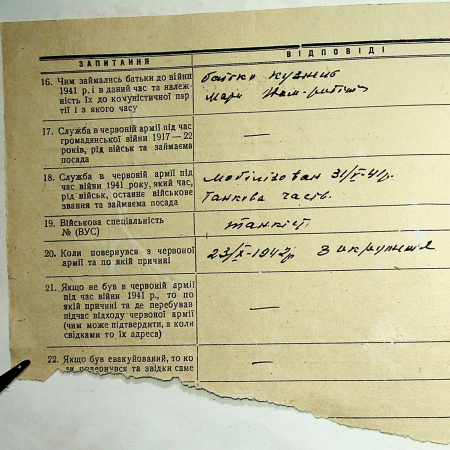 ЗАПИТАННЯ
ВІДПОВІДІ
16. Чим займались батьки до війни
1941 р. і в даний час та належ-
ність їх до комуністичної пар
тії і з якого часу
батько кузнець
17. Служба в червоній армії під час
громадянської війни 1917—22
років, рід військ та займаєма
посада
—
18. Служба в червоній армії під
час війни 1941 року, який час,
рід військ, останнє військове
звання та займаєма посада
мобілізован
Танкова част.
19. Військова спеціальність
№ (ВУС)
танкіст.
20. Коли повернувся з червоної
армії та по якій причині
23/X-1942р З окруженія
21. Якщо не був в червоній армії
під час війни 1941 р., то по
якій причині та де перебував
підчас відходу червоної армії
(чим може підтвердити, а коли
свідками то їх адреса)
—
22. Якщо був евакуйований, то ко
ли повернувся та звідки саме
—